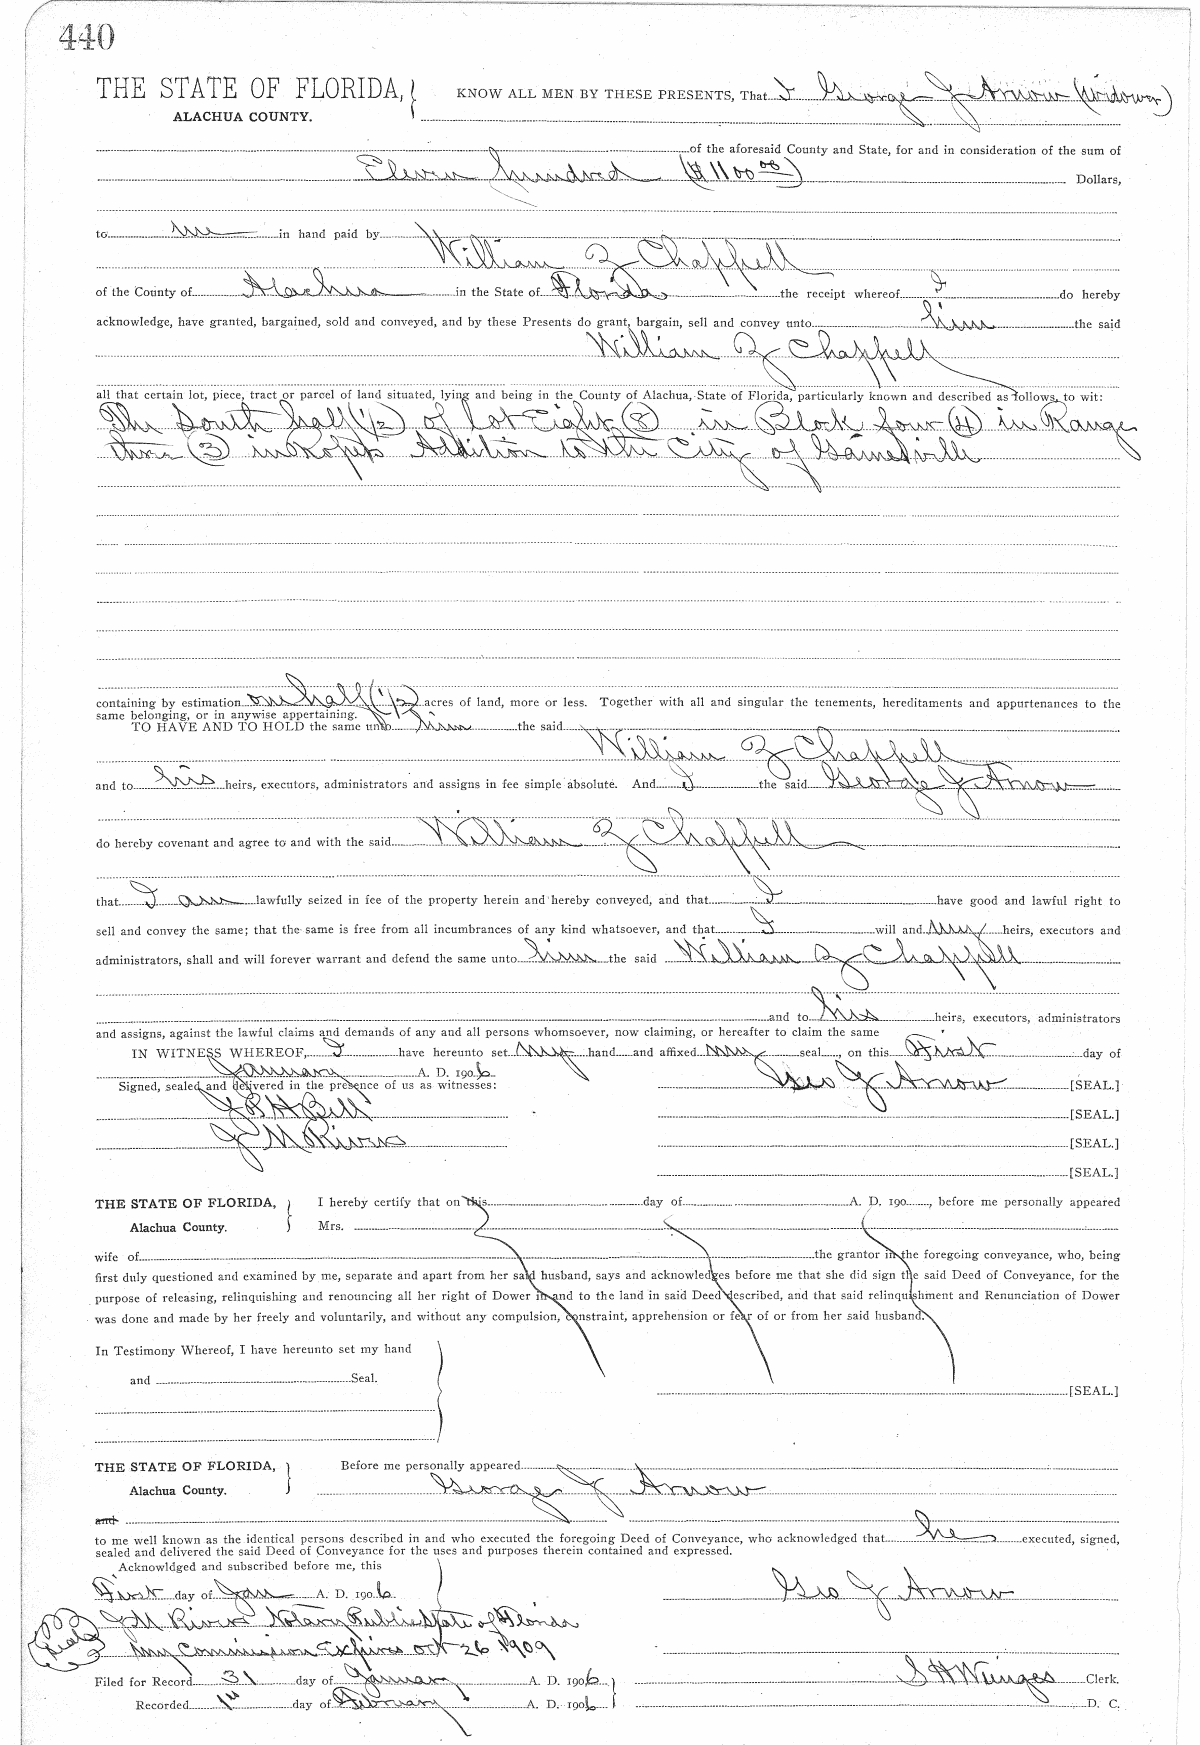 440
THE STATE OF FLORIDA, KNOW ALL MEN BY THESE PRESENTS, That I George J Arnow (widower)
ALACHUA COUNTY.
of the aforesaid County and State, for and in consideration of the sum of
Eleven hundred ($1100 00) Dollars,
to me in hand paid by
William Z Chappell
of the County of Alachua in the State of Florida the receipt whereof I do hereby
acknowledge, have granted, bargained, sold and conveyed, and by these Presents do grant, bargain, sell and convey unto him the said
William Z Chappell
all that certain lot, piece, tract or parcel of land situated, lying and being in the County of Alachua, State of Florida, particularly known and described as follows, to wit:
The South half (1/2) of lot Eight (8) in Block four (4) in Range
three (3) in Ropers Addition to the City of Gainesville
containing by estimation one half (1/2) acres of land, more or less. Together with all and singular the tenements, hereditaments and appurtenances to the
same belonging, or in anywise appertaining.
TO HAVE AND TO HOLD the same unto him the said
William Z Chappell
and to his heirs, executors, administrators and assigns in fee simple absolute. And I the said George J Arnow
do hereby covenant and agree to and with the said William Z Chappell
that I am lawfully seized in fee of the property herein and hereby conveyed, and that I have good and lawful right to
sell and convey the same; that the same is free from all incumbrances of any kind whatsoever, and that I will and my heirs, executors and
administrators, shall and will forever warrant and defend the same unto him the said William Z Chappell
and to his heirs, executors, administrators
and assigns, against the lawful claims and demands of any and all persons whomsoever, now claiming, or hereafter to claim the same
IN WITNESS WHEREOF, I have hereunto set my hand and affixed my seal, on this First day of
January A. D. 1906
Signed, sealed and delivered in the presence of us as witnesses: Geo J Arnow [SEAL.]
J B H Bill [SEAL.]
J M Rivers [SEAL.]
[SEAL.]
THE STATE OF FLORIDA, I hereby certify that on this day of A. D. 190 , before me personally appeared
Alachua County. Mrs.
wife of the grantor in the foregoing conveyance, who, being
first duly questioned and examined by me, separate and apart from her said husband, says and acknowledges before me that she did sign the said Deed of Conveyance, for the
purpose of releasing, relinquishing and renouncing all her right of Dower in and to the land in said Deed described, and that said relinquishment and Renunciation of Dower
was done and made by her freely and voluntarily, and without any compulsion, constraint, apprehension or fear of or from her said husband.
In Testimony Whereof, I have hereunto set my hand
and Seal.
[SEAL.]
THE STATE OF FLORIDA, Before me personally appeared
Alachua County. George J Arnow
and
to me well known as the identical persons described in and who executed the foregoing Deed of Conveyance, who acknowledged that he executed, signed,
sealed and delivered the said Deed of Conveyance for the uses and purposes therein contained and expressed.
Acknowldged and subscribed before me, this
First day of Jan A. D. 1906 Geo J Arnow
J M Rivers Notary Public State of Florida
Seal My Commission Expires Oct 26 1909
Filed for Record 31 day of January A. D. 1906 S H Wienges Clerk.
Recorded 1st day of February A. D. 1906 D. C.